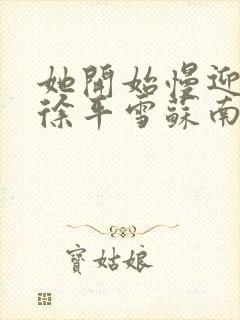 她開始慢迎
徐平雪蘇南
寶姑娘